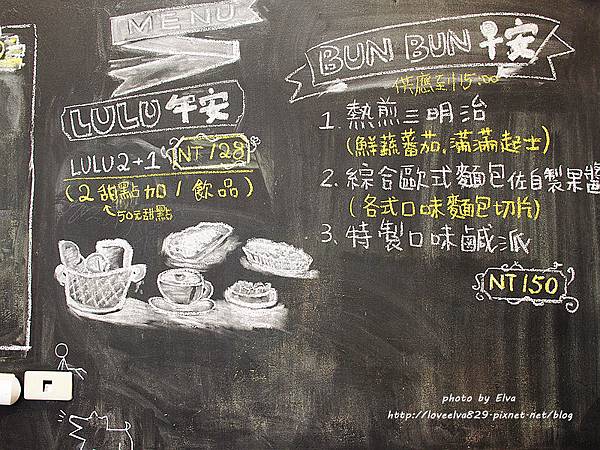 MENU
LULU 午安
LULU 2+1 NT 128
(2甜點加1飲品)
50元甜點
BUN BUN 早安
供應到15:00
1. 熱煎三明治
(鮮蔬蕃茄.滿滿起士)
2. 綜合歐式麵包佐自製果醬
(各式口味麵包切片)
3. 特製口味鹹派
NT 150
photo by Elva
http://loveelva829.pixnet.net/blog